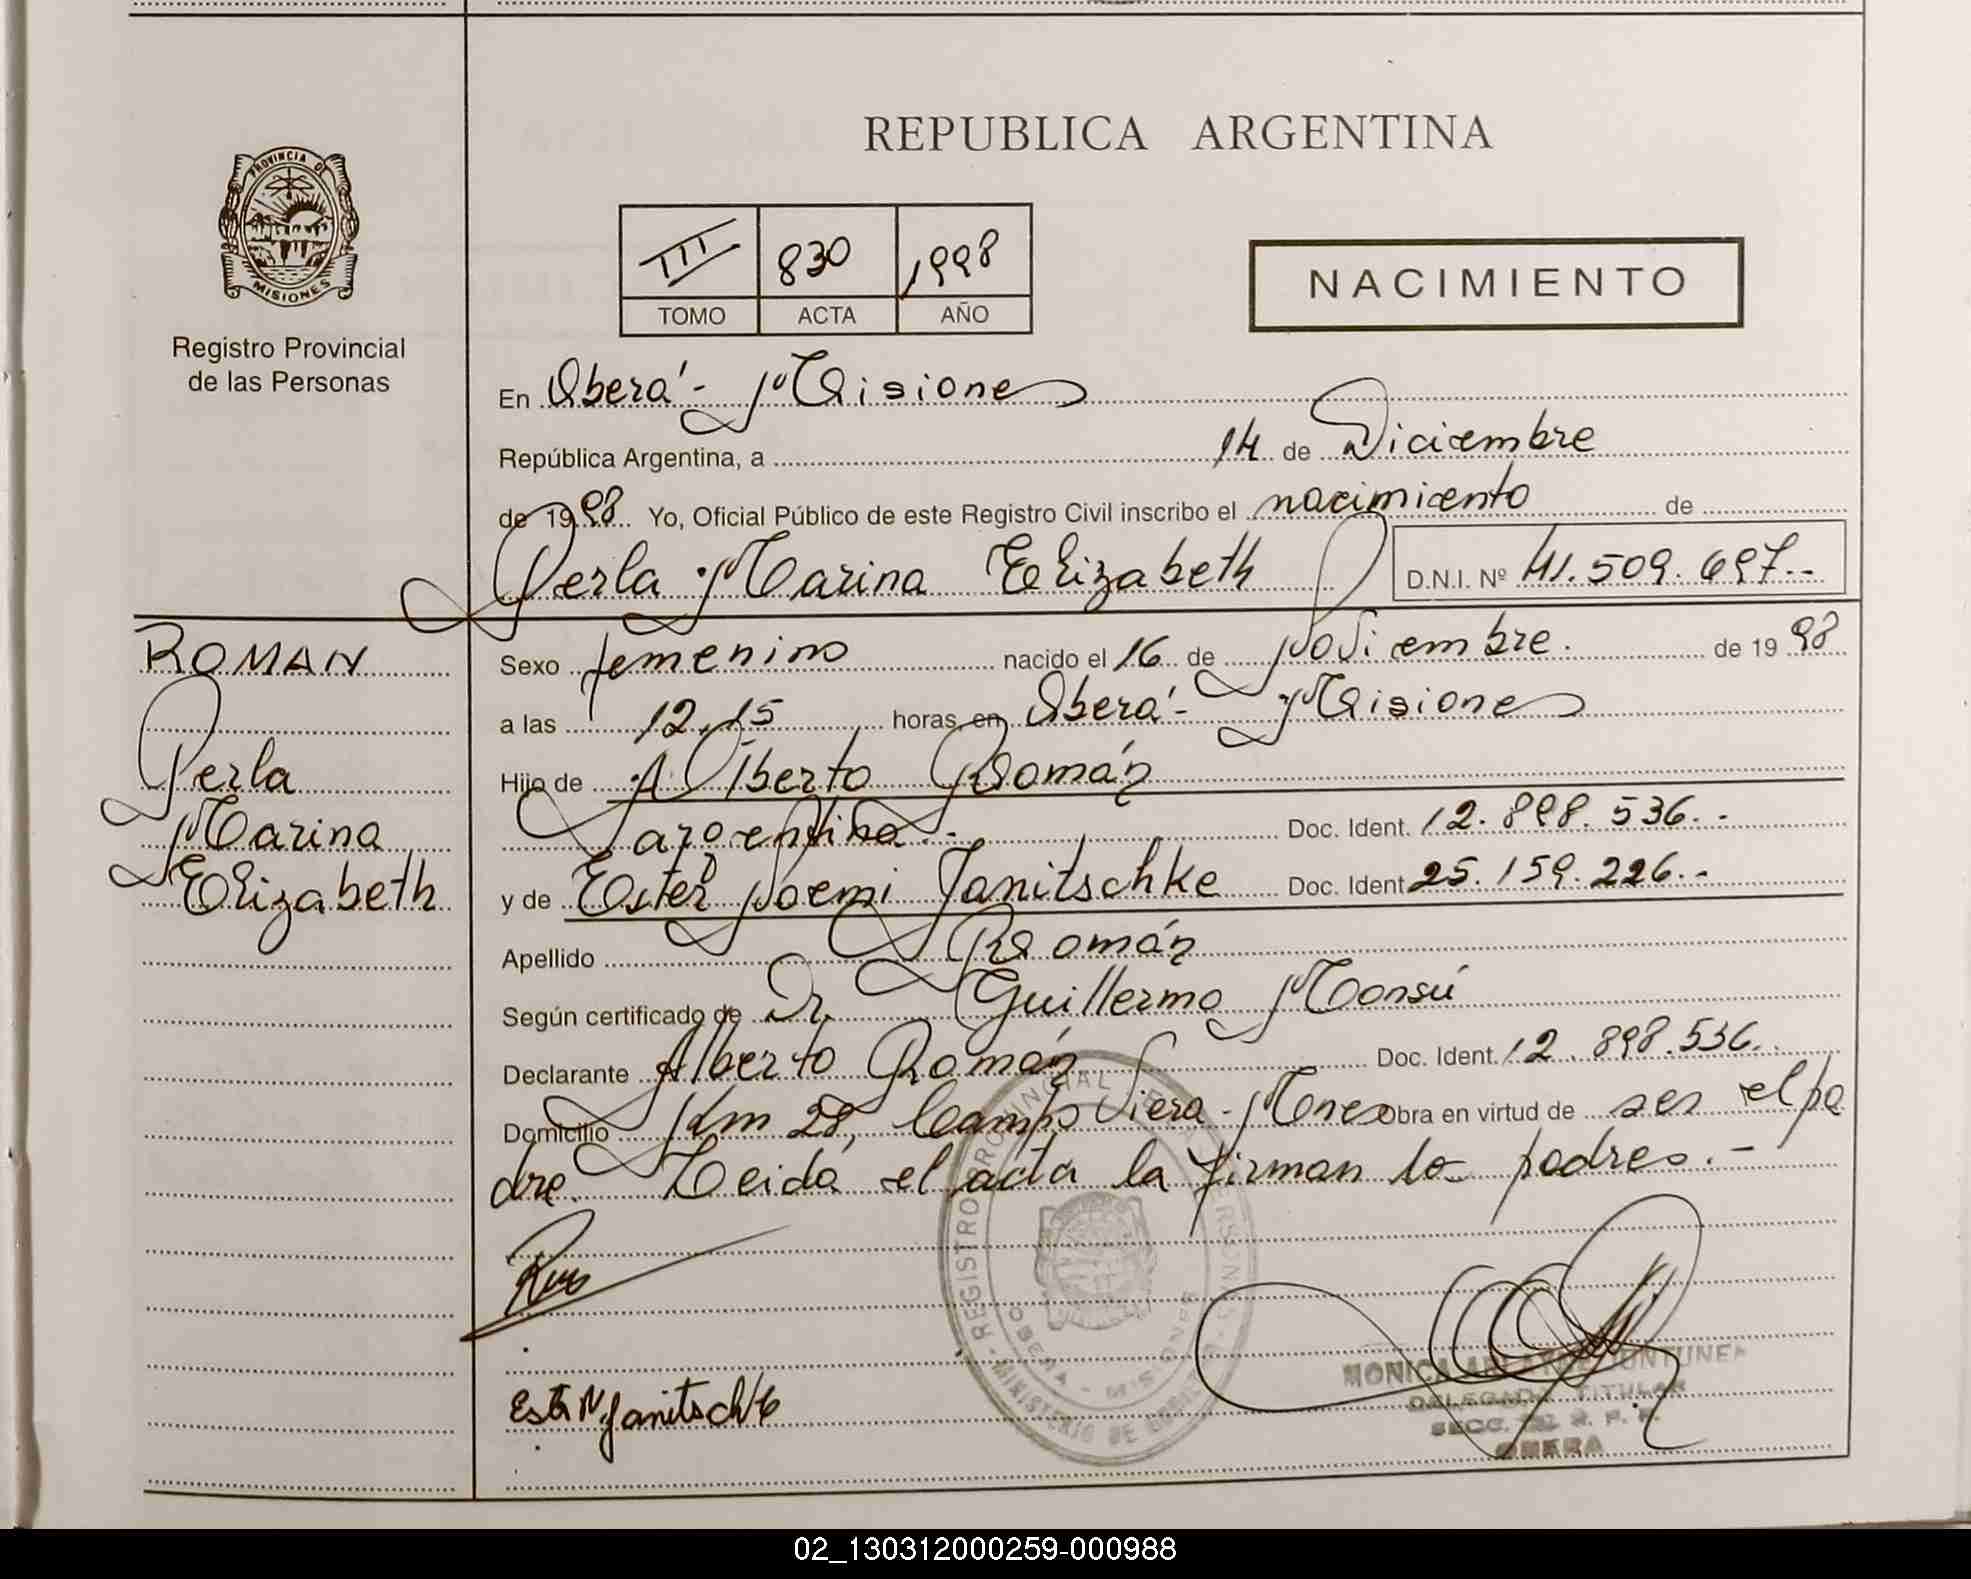 REPUBLICA ARGENTINA
PROVINCIA DE
MISIONES
Registro Provincial
de las Personas
III 830 1998
TOMO ACTA AÑO
NACIMIENTO
En Oberá - Misiones
República Argentina, a 14 de Diciembre
de 1998 Yo, Oficial Público de este Registro Civil inscribo el nacimiento de
Perla Marina Elizabeth D.N.I. Nº 41.509.697.-
ROMAN
Perla
Marina
Elizabeth
Sexo femenino nacido el 16 de Noviembre. de 1998
a las 12,15 horas, en Oberá - Misiones
Hijo de Alberto Román
argentina.- Doc. Ident. 12.898.536.-
y de Ester Noemi Janitschke Doc. Ident 25.159.226.-
Apellido Román
Según certificado de Dr. Guillermo Monsú
Declarante Alberto Román Doc. Ident. 12.898.536.
Domicilio Km 28, Campo Viera - Mnes Obra en virtud de ser el pa
dre. Leida el acta la firman lo padres.-
REGISTRO PROVINCIAL DE LAS PERSONAS
MINISTERIO DE
OBERA - MISIONES
Ester N. Janitschke
MONICA
DELEGADA TITULAR
SECC. R. P. P.
OBERA
02_130312000259-000988